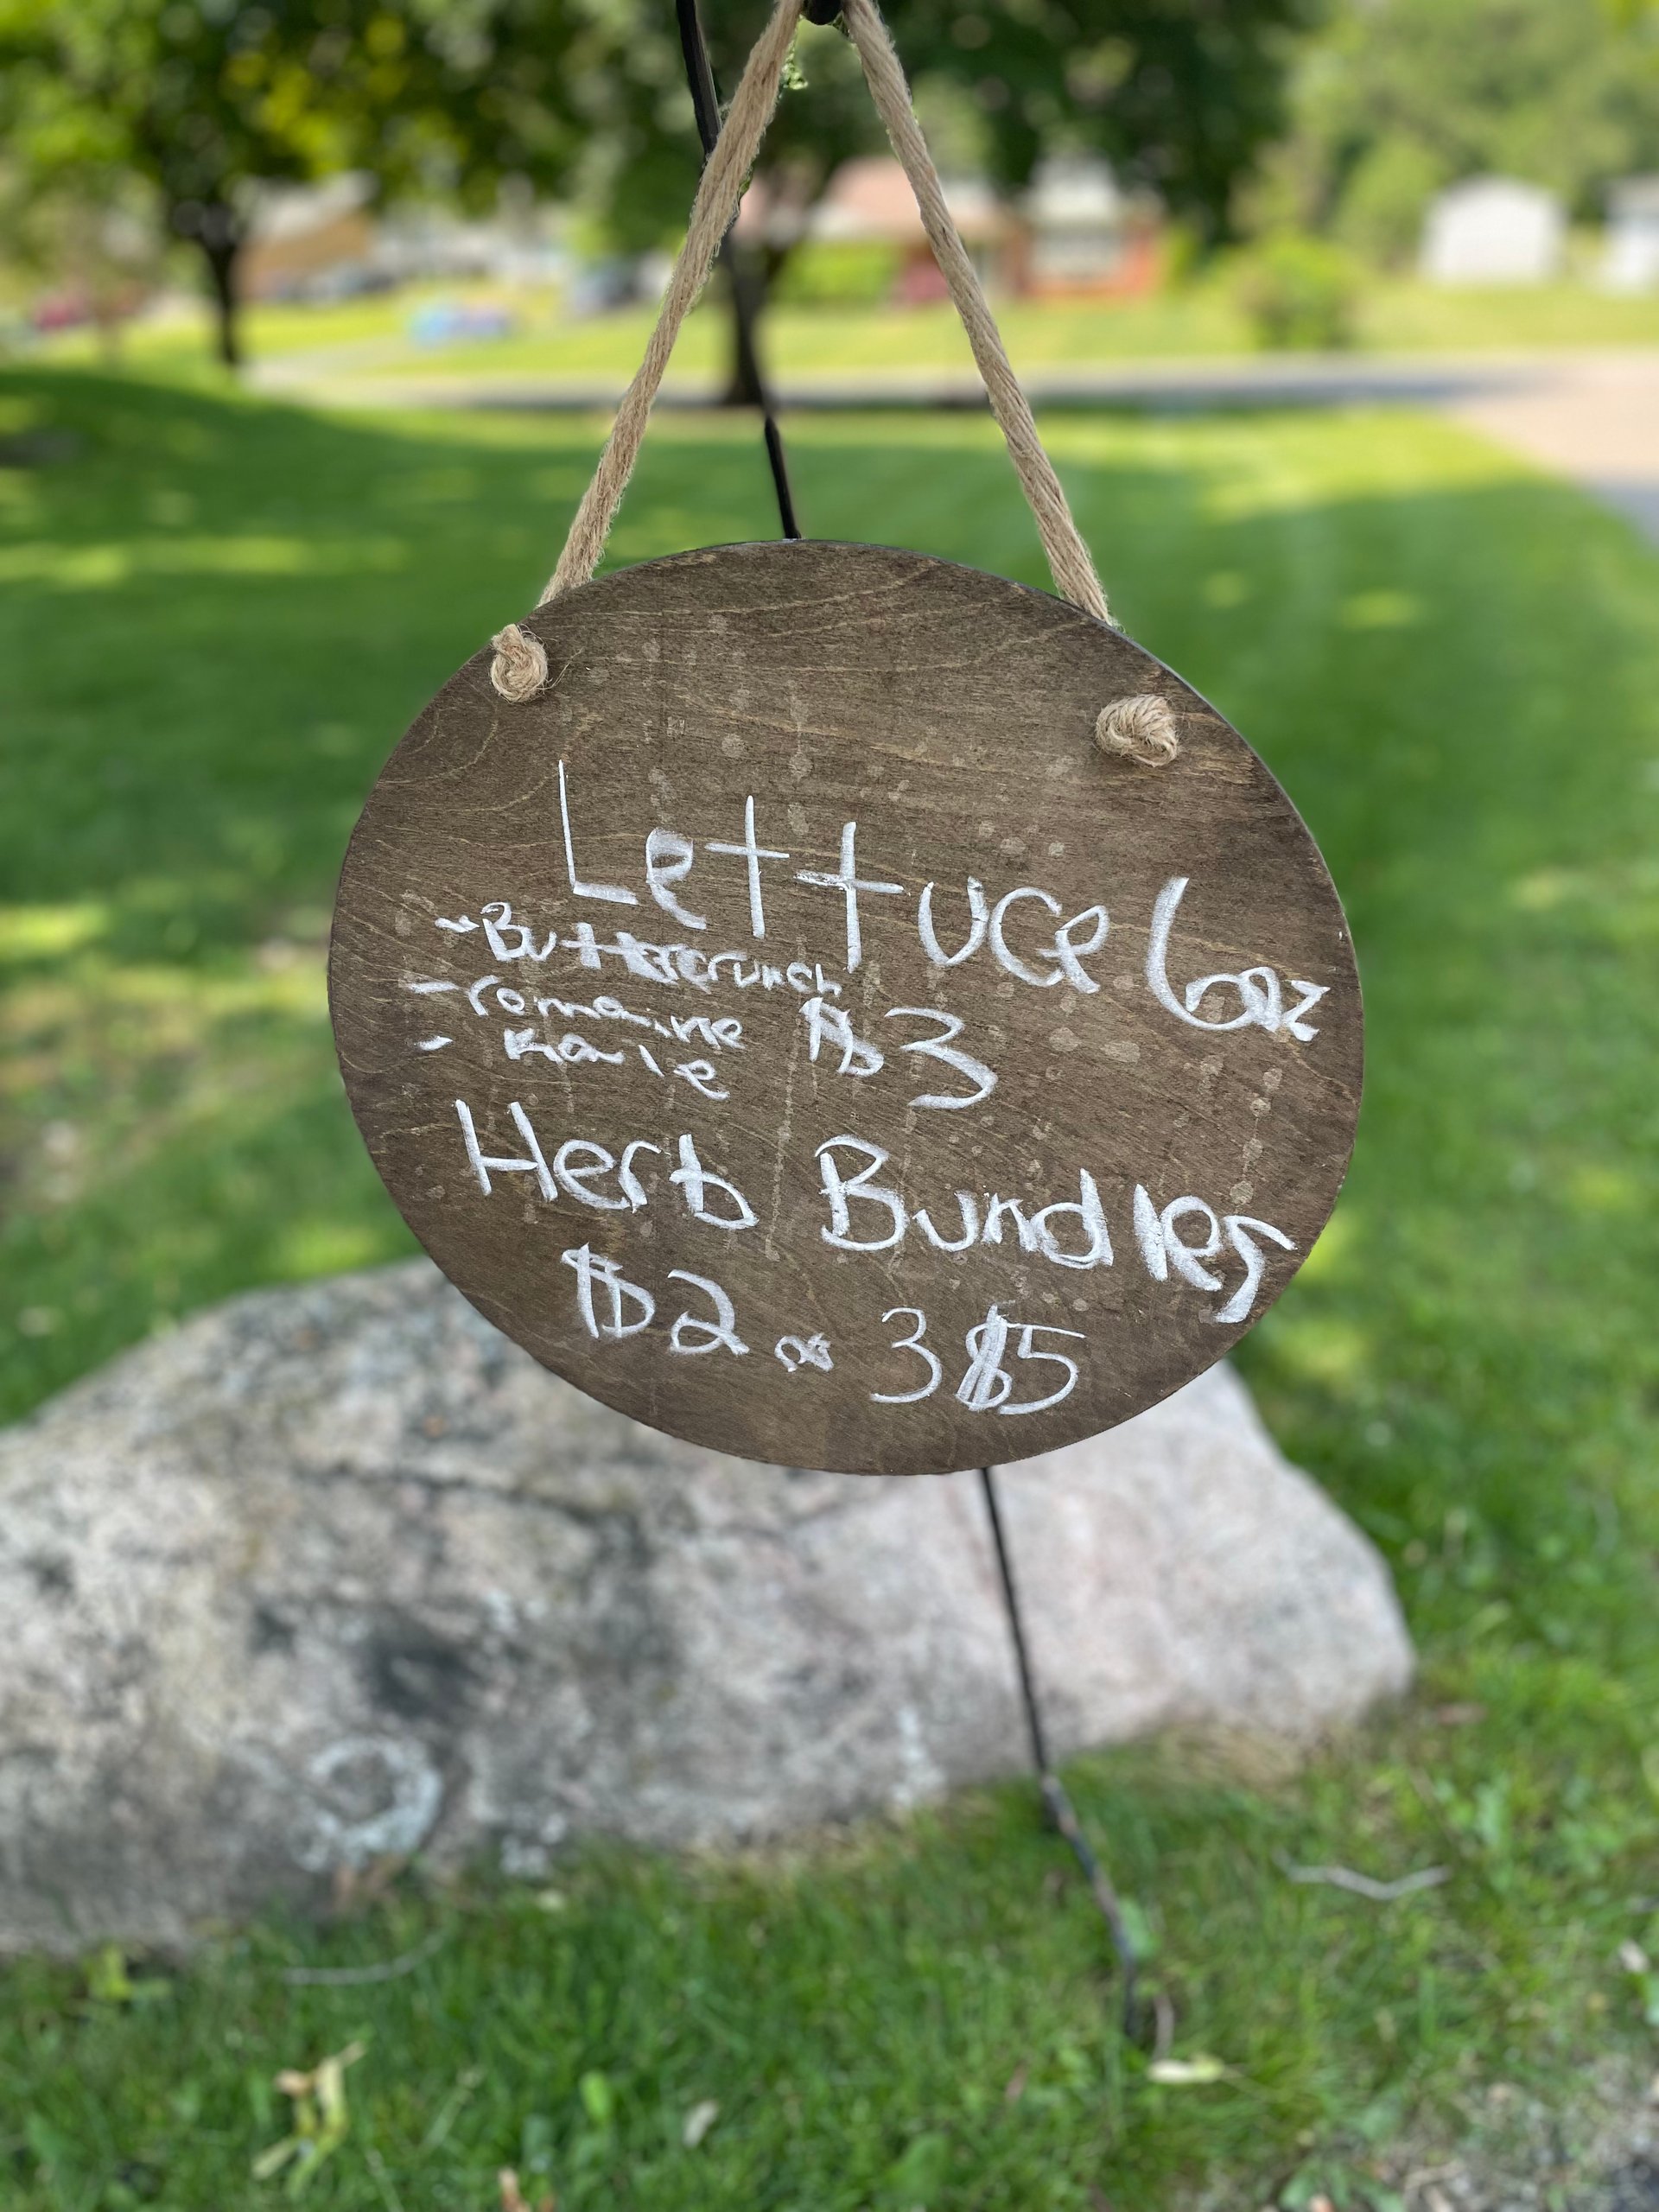 Lettuce 6oz
- Buttercrunch
- romaine $3
- Kale
Herb Bundles
$2 or 3 $5